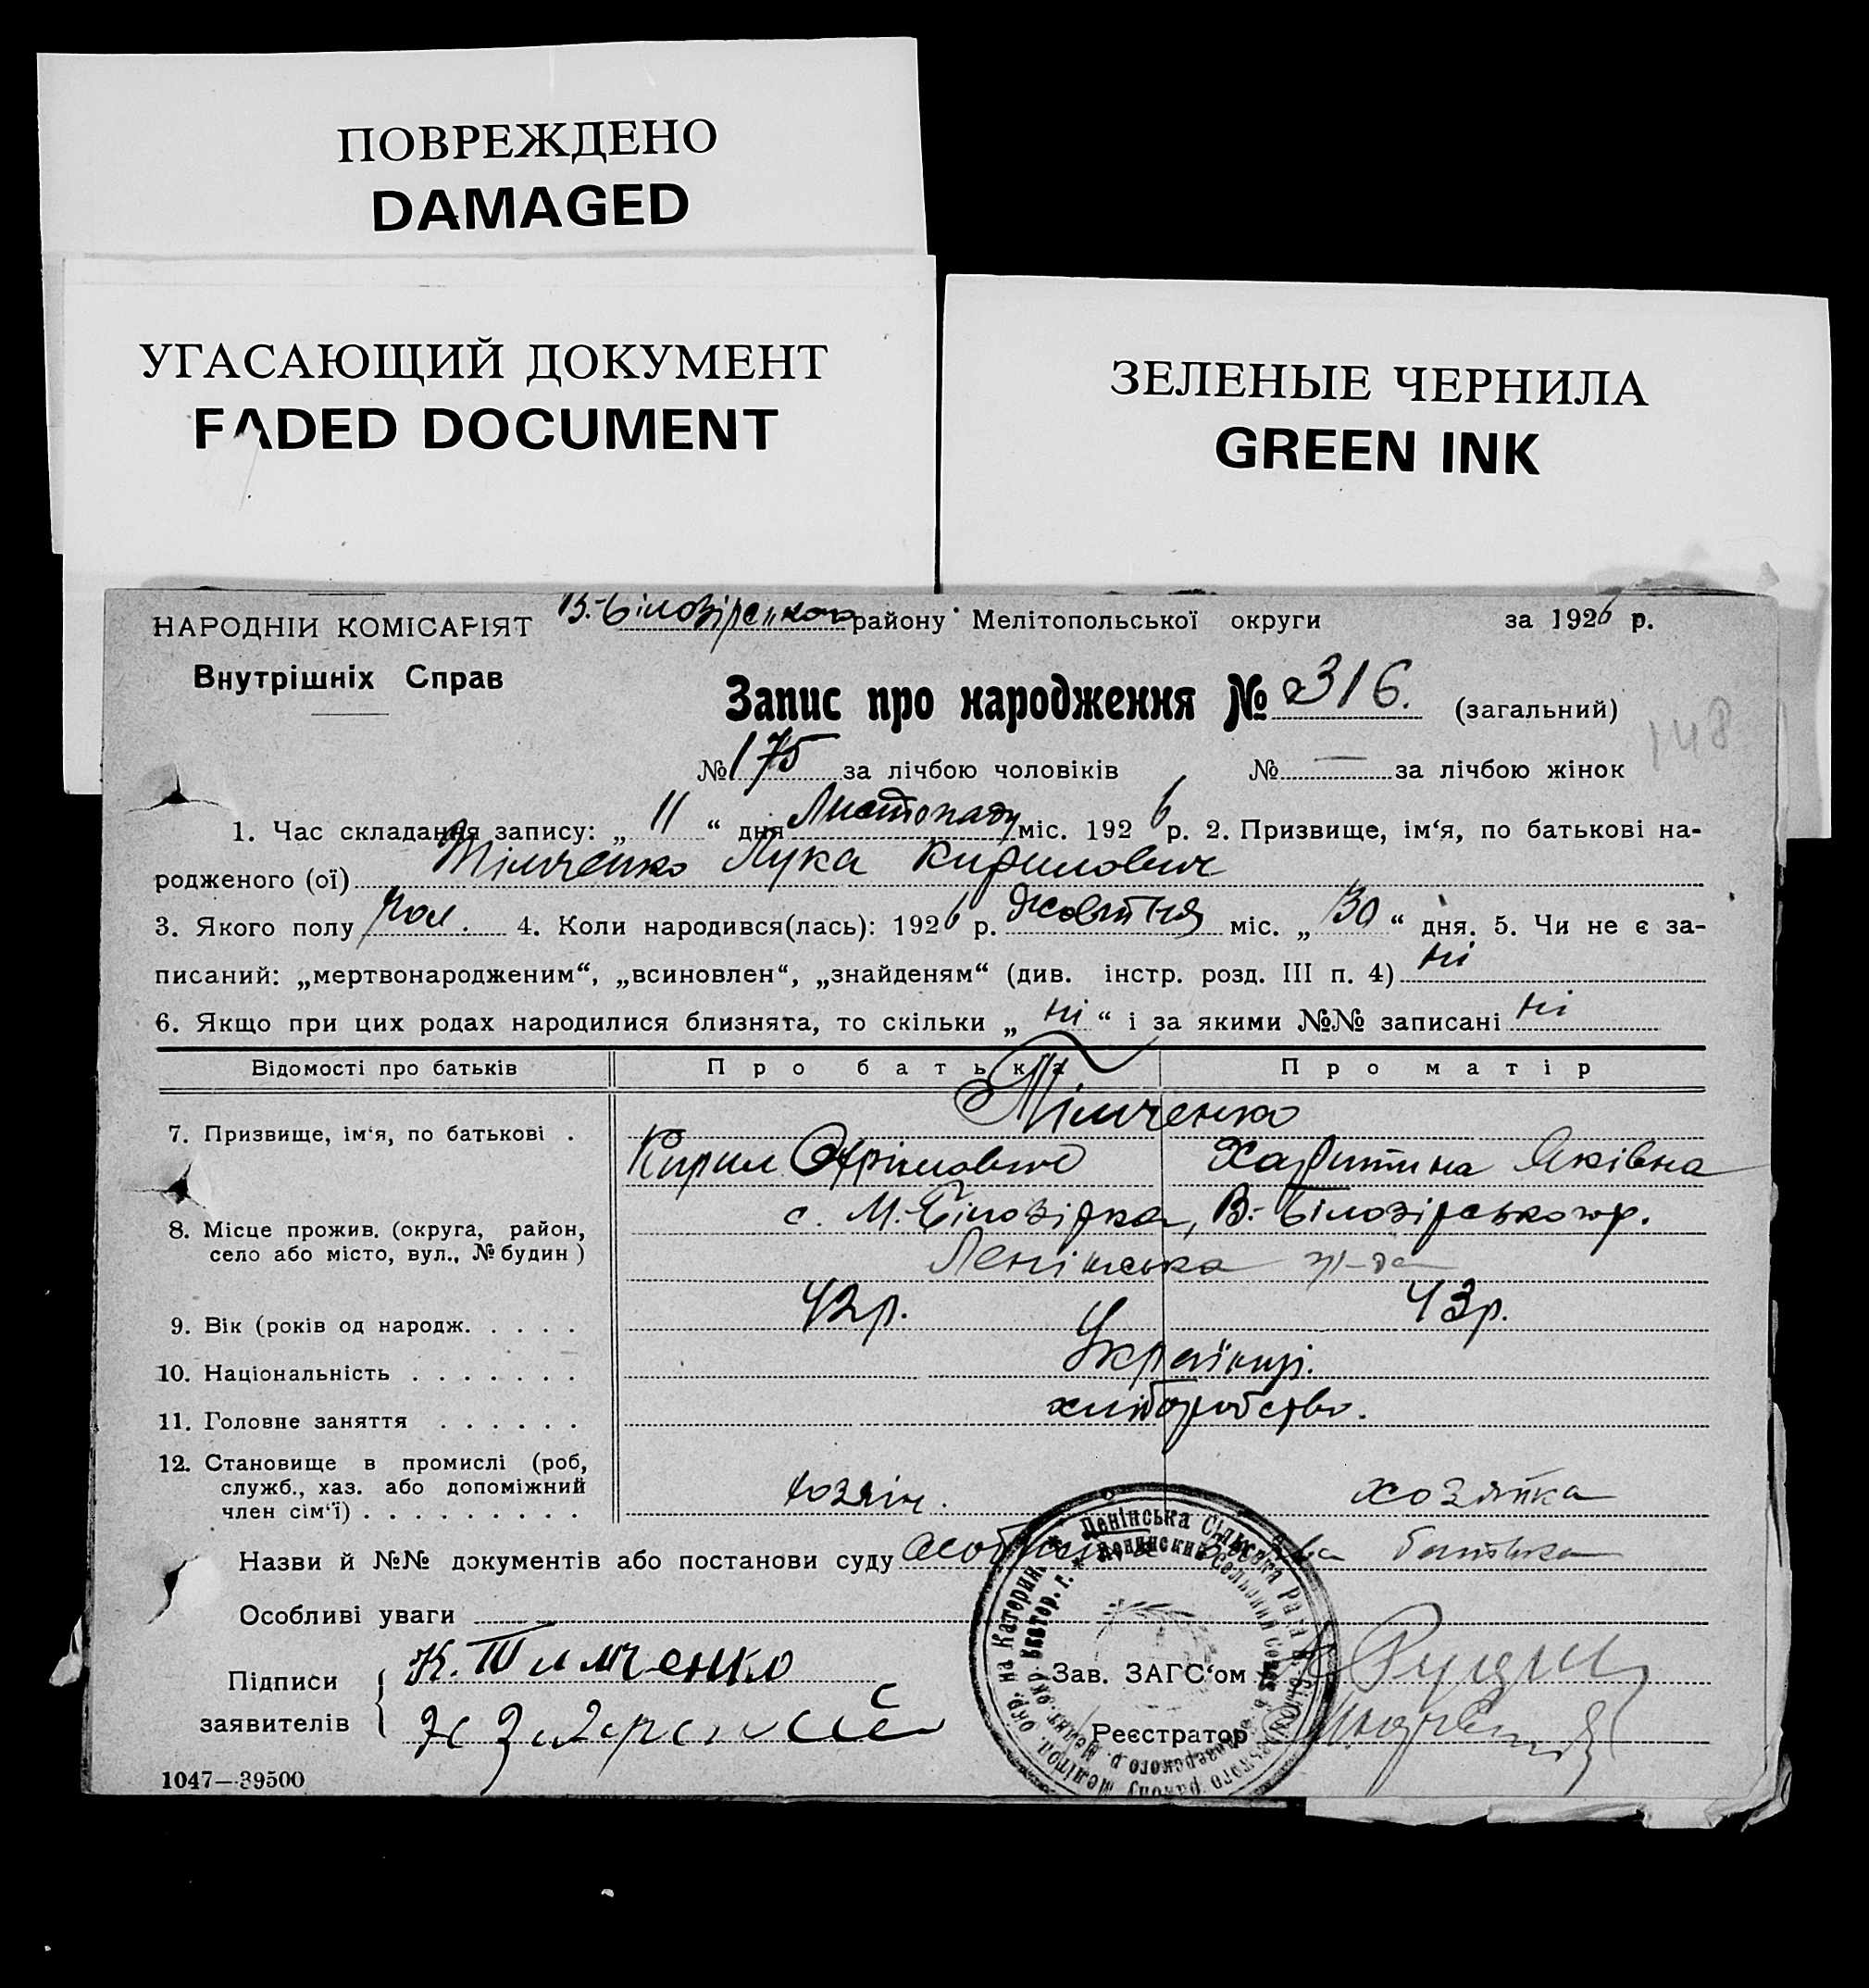 ПОВРЕЖДЕНО
DAMAGED
УГАСАЮЩИЙ ДОКУМЕНТ
FADED DOCUMENT
ЗЕЛЕНЫЕ ЧЕРНИЛА
GREEN INK
НАРОДНІЙ КОМІСАРІЯТ В.-Білозірського району Мелітопольської округи за 1926 р.
Внутрішніх Справ
Запис про народження № 316. (загальний)
148
№ 175 за лічбою чоловіків № — за лічбою жінок
1. Час складання запису: „ 11 “ дня Листопаду міс. 1926 р. 2. Призвище, ім‘я, по батькові на-
родженого (ої) Тімченко Лука Кирилович
3. Якого полу чол. 4. Коли народився(лась): 1926 р. Жовтня міс. „ 30 “ дня. 5. Чи не є за-
писаний: „мертвонародженим“, „всиновлен“, „знайденям“ (див. інстр. розд. III п. 4) ні
6. Якщо при цих родах народилися близнята, то скільки „ ні “ і за якими №№ записані ні
Відомості про батьків Про батька Про матір
Тімченко
7. Призвище, ім‘я, по батькові .
Кирил Харитина Яківна
с. М.-Білозірка, В.-Білозірського р.
8. Місце прожив. (округа, район,
село або місто, вул., № будин )
Ленінська
9. Вік (років од народж. . . . . 42р. 43р.
10. Національність . . . . . . . Українці.
11. Головне заняття . . . . . . хліборобство.
12. Становище в промислі (роб,
служб., хаз. або допоміжний
член сім‘ї) . . . . . . . . . хозяїн. хозяйка
Назви й №№ документів або постанови суду батька
Особливі уваги
Підписи К. Тимченко Зав. ЗАГС‘ом
заявителів Реєстратор
Ленінська Сільська Рада
1047—39500